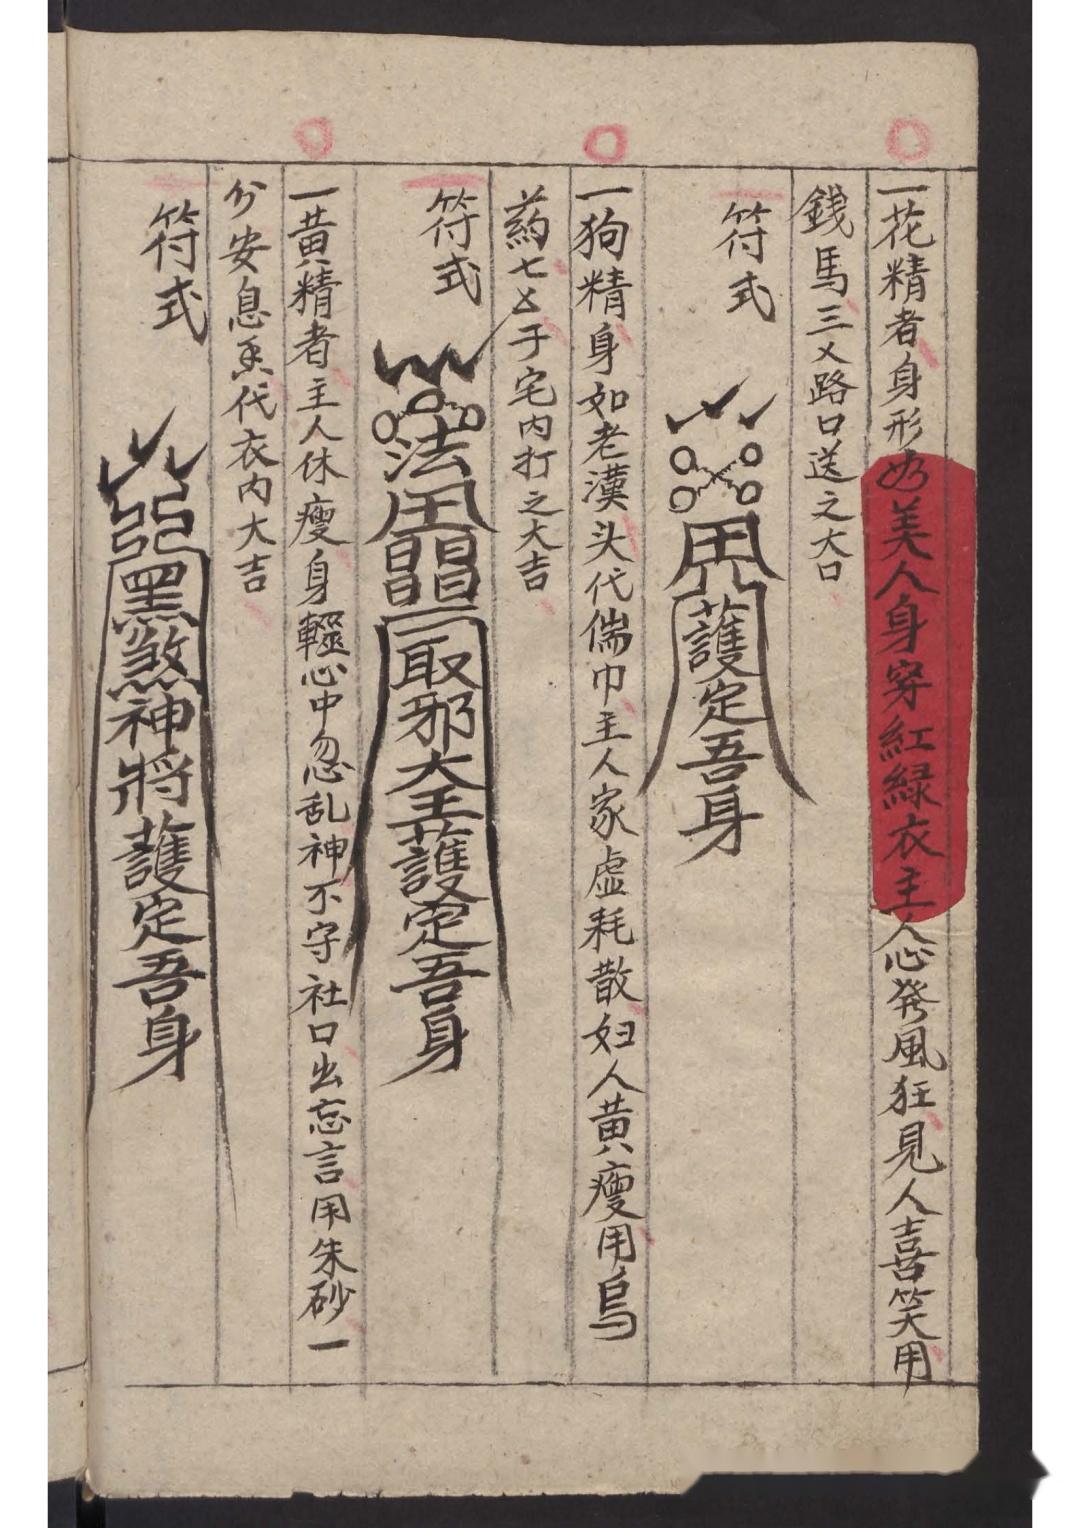 一花精者身形如美人身穿紅緑衣主人心發風狂見人喜笑用
錢馬三乂路口送之大口
符式
用 護定吾身
一狗精身如老漢头代儒巾主人家虚耗散妇人黄瘦用烏
药七𠀋于宅内打之大吉
符式
法用 取邪大王護定吾身
一黄精者主人休瘦身輕心中忽乱神不守社口出忘言用朱砂一
分安息香代衣内大吉
符式
黑煞神將護定吾身